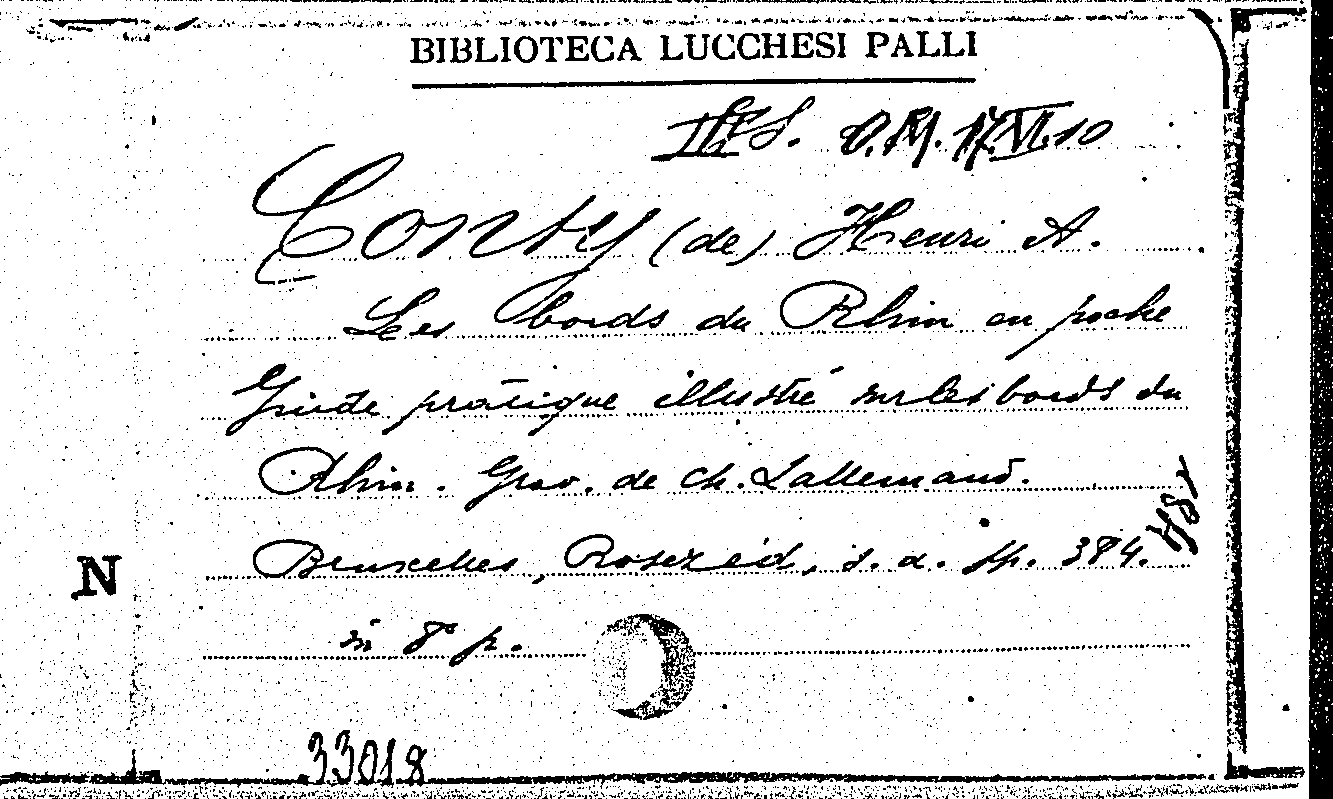 BIBLIOTECA LUCCHESI PALLI
O.M. 17.VI.10
Conty (de) Henri A.
Les bords du Rhin en poche
Guide pratique illustré sur les bords du
Rhin. Grav. de Ch. Lallemand.
Bruxelles, Rosez éd, s. a. pp. 384.
in 8° p.
N
33018